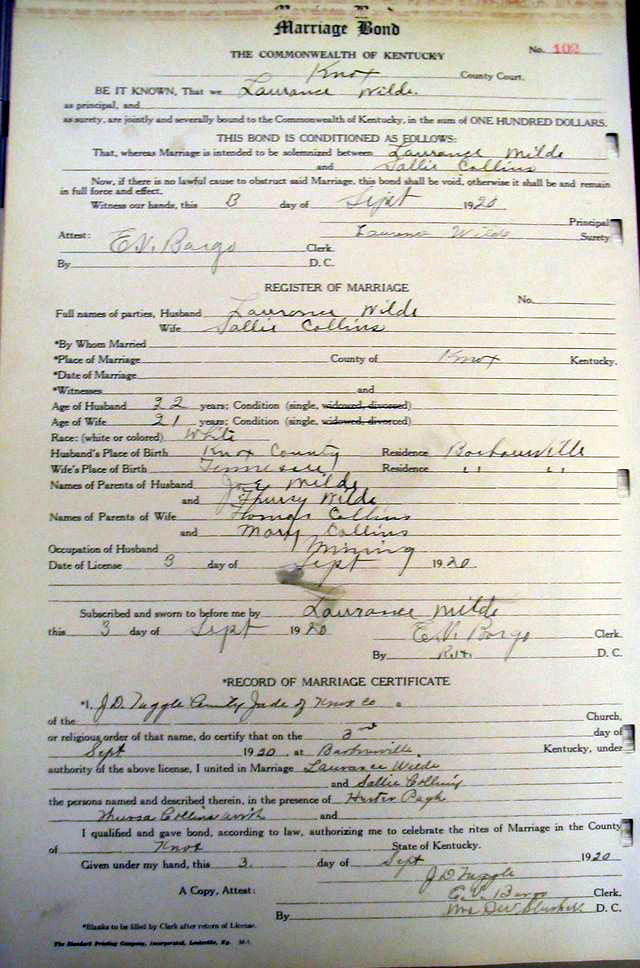 Marriage Bond
THE COMMONWEALTH OF KENTUCKY
No. 102
Knox County Court.
BE IT KNOWN, That we Laurance Wilde
as principal, and
as surety, are jointly and severally bound to the Commonwealth of Kentucky, in the sum of ONE HUNDRED DOLLARS.
THIS BOND IS CONDITIONED AS FOLLOWS:
That, whereas Marriage is intended to be solemnized between Laurance Wilde
and Sallie Collins
Now, if there is no lawful cause to obstruct said Marriage, this bond shall be void, otherwise it shall be and remain
in full force and effect.
Witness our hands, this 3 day of Sept 1920
Principal
Attest: Laurence Wilde Surety
E.V. Bargo Clerk.
By D. C.
REGISTER OF MARRIAGE
No.
Full names of parties, Husband Laurance Wilde
Wife Sallie Collins
*By Whom Married
*Place of Marriage County of Knox Kentucky.
*Date of Marriage
*Witnesses and
Age of Husband 22 years; Condition (single, widowed, divorced)
Age of Wife 21 years; Condition (single, widowed, divorced)
Race: (white or colored) White
Husband's Place of Birth Knox County Residence Barbourville
Wife's Place of Birth Tennessee Residence " "
Names of Parents of Husband Joe Wilde
and Thursy Wilde
Names of Parents of Wife Thomas Collins
and Mary Collins
Occupation of Husband Mining
Date of License 3 day of Sept 1920
Subscribed and sworn to before me by Laurance Wilde
this 3 day of Sept 1920 E.V. Bargo Clerk.
By D. C.
*RECORD OF MARRIAGE CERTIFICATE
*I, J.D. Tuggle County Jude of Knox Co
of the Church,
or religious order of that name, do certify that on the 3rd day of
Sept 1920, at Barbourville Kentucky, under
authority of the above license, I united in Marriage Laurance Wilde
and Sallie Collins
the persons named and described therein, in the presence of
Collins and
I qualified and gave bond, according to law, authorizing me to celebrate the rites of Marriage in the County
of Knox State of Kentucky.
Given under my hand, this 3. day of Sept 1920
J D Tuggle
A Copy, Attest: E.V. Bargo Clerk,
By D. C.
*Blanks to be filled by Clerk after return of License.
The Standard Printing Company, Incorporated, Louisville, Ky.